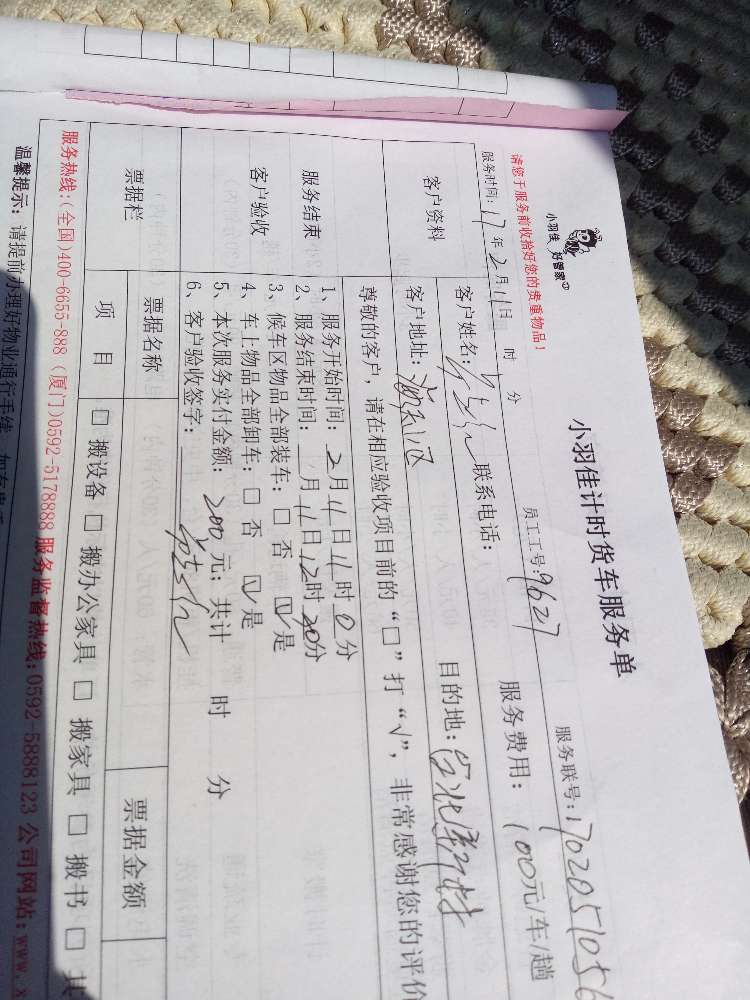 小羽佳 好管家
小羽佳计时货车服务单
请您于服务前收拾好您的贵重物品！
员工工号:9627
服务联号:1702051056
服务时间:17年2月11日 时 分
服务费用: 100元/车/趟
客户资料
客户姓名: 联系电话:
客户地址: 目的地:
尊敬的客户，请在相应验收项目前的“□”打“√”，非常感谢您的评价
服务结束
客户验收
1、服务开始时间: 2月11日11时0分
2、服务结束时间: 月11日12时20分
3、候车区物品全部装车: □ 否 ☑是
4、车上物品全部卸车: □ 否 ☑是
5、本次服务实付金额: 200元; 共计 时 分
6、客户验收签字:
票据栏
票据名称
票据金额
项 目
□ 搬设备 □ 搬办公家具 □ 搬家具 □ 搬书 □ 其
服务热线:(全国)400-6655-888 (厦门)0592-5178888 服务监督热线:0592-5888123 公司网站:www.x
温馨提示: 请提前办理好物业通行手续